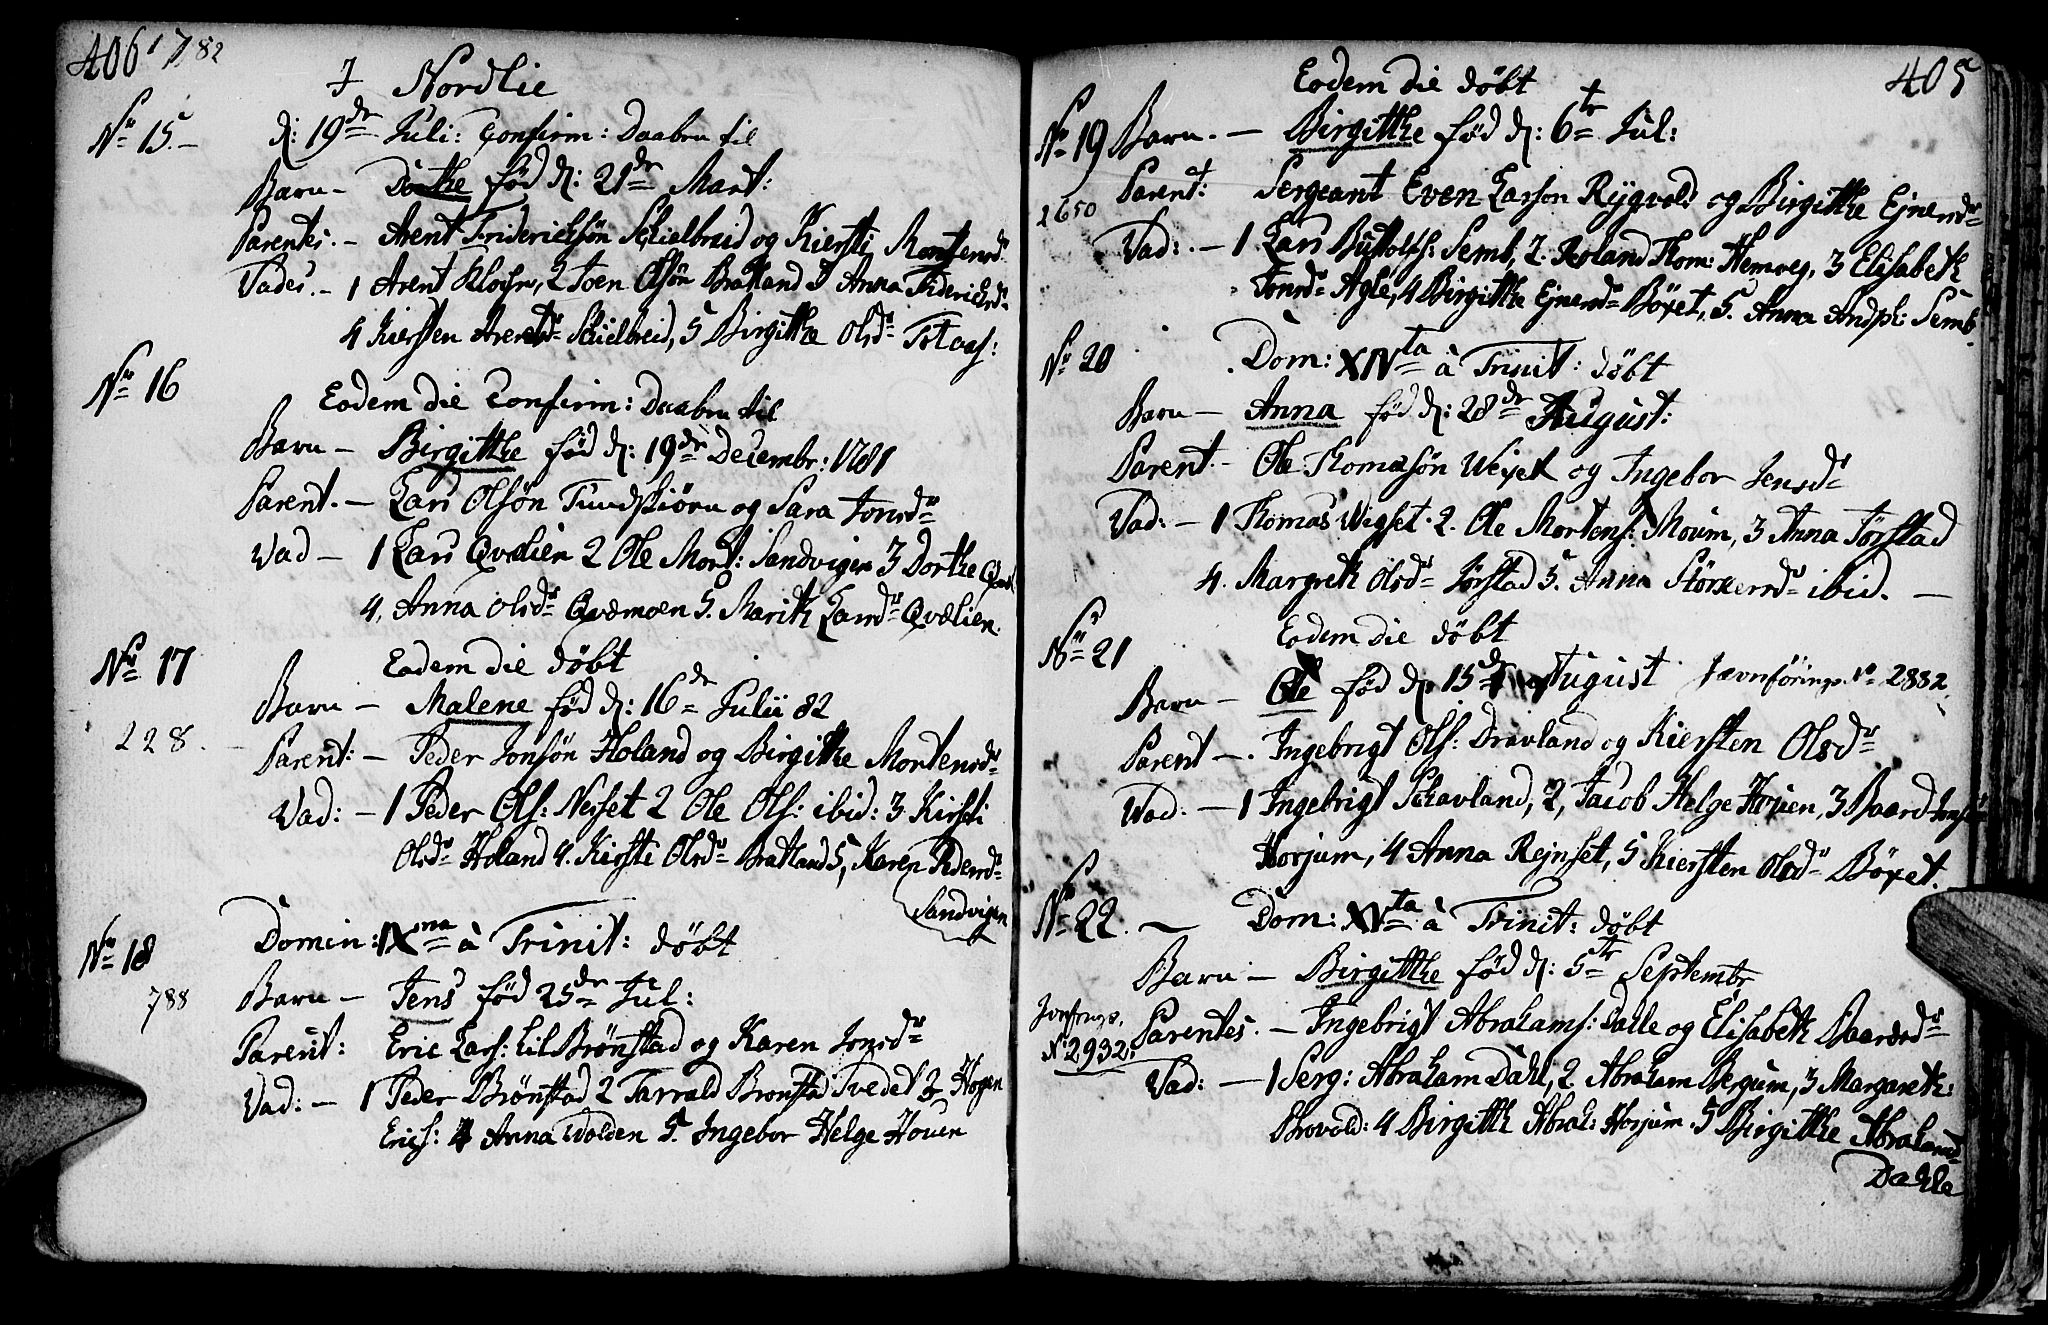 406 1782
I Nordlie
No 15. — d: 19de Juli: Confirm: Daaben til
Barn — Dorthe fød d: 21de Mart:
Parentes. — Arent Friderichsøn Schielbreid og Kiersti Mortensd.
Fades. — 1 Arent Klocher, 2 Joen Olsøn Bratland 3 Anna Fiderichsd.
4 Kiersten Arentsd. Schielbreid, 5 Birgithe Olsd.
No 16
Eodem die Confirm: Daaben til
Barn — Birgitthe fød d: 19de Decembr: 1781
Parent. — Lars Olsøn Tundskiørn og Sara Jonsd.
Vad — 1 Lars Qvelien 2 Ole Mort: Sandvigen 3 Dorthe
4, Anna Olsd. Qvemoen 5. Marith Larsd. Qvelien.
No 17
Eodem die døbt
Barn — Malene fød d: 16de Julii 82
228. Parent: — Peder Jonsøn Holand og Birgithe Mortensd.
Vad: — 1 Peder Ols: Neset 2 Ole Ols: ibid: 3 Kirsti
Olsd. Holand 4. Kirsti Olsd. Bratland 5, Karen Pedersd.
Sandvigen
Domin: IXna à Trinit: døbt
No 18
788 Barn — Jens fød 25de Jul:
Parent: Eric Lars: Lil Brønstad og Karen Jonsd.
Vad: — 1 Peder Brønstad 2 Tarrald Brønstad Tvedel 3 Hogen
Erics: 4 Anna Wolden 5. Ingebor Helge Houen
405
Eodem die døbt
No 19 Barn. — Birgitthe fød d: 6te Jul:
2650 Parent: Sergeant Even Larson Rygvold og Birgithe Ejnersd.
Vad: — 1 Lars Buttolfs: Semb, 2. Roland Thom: Hemveg, 3 Elisabeth
Jonsd. Agle, 4 Birgithe Ejnersd. Bøxet, 5. Anna Andph: Semb.
No 20 Dom: XIVta à Trinit: døbt
Barn — Anna fød d: 28de August:
Parent. — Ole Thomasøn Wexet og Ingebor Jensd.
Vad: — 1 Thomas Wegset. 2. Ole Mortens: Moum, 3 Anna Jørstad
4. Margreth Olsd. Jørstad 5. Anna Størxersd. ibid. —
No 21 Eodem die døbt
Barn — Ole fød d. 15de August Jævnførings No 2882
Parent — Ingebrigt Ols: Dravland og Kiersten Olsd.
Vad: — 1 Ingebrigt Schavland, 2, Jacob Helge Houen, 3 Baard
Horjum, 4 Anna Rejnset, 5 Kiersten Olsd. Bøxet.
No 22. — Dom: XVta à Trinit: døbt
Barn — Birgitthe fød d: 5te Septembr
Jvnfrngs.
No 2932: Parentes. — Ingebrigt Abrahams: Dalle og Elisabeth Baardsd.
Vad: — 1 Serg: Abraham Dahl, 2 Abraham Bergum, 3 Margareth:
Brovold: 4 Birgith Abrah: Horjum. 5 Birgitthe Abrahamsd.
Dahle